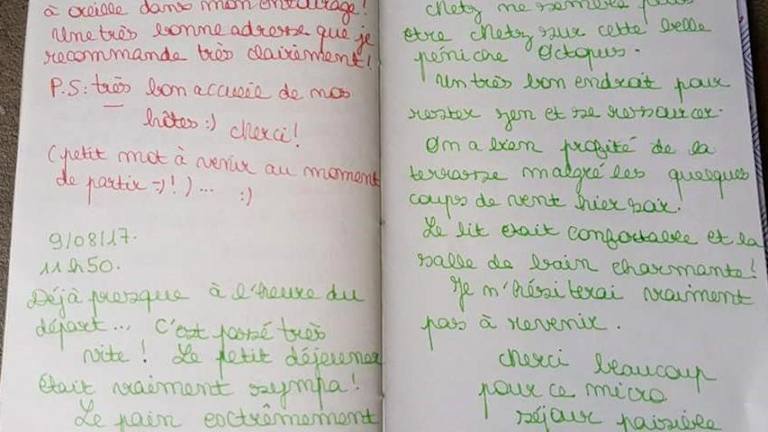 à oreille dans mon entourage!
Une très bonne adresse que je
recommande très clairement!
P.S: très bon accueil de nos
hôtes :) Merci!
(petit mot à venir au moment
de partir =)!)... :)
9/08/17.
11h50.
Déjà presque à l'heure du
départ... C'est passé très
vite! Le petit déjeuner
était vraiment sympa!
Le pain extrêmement
être chez sur cette belle
péniche Octopus.
Un très bon endroit pour
rester zen et se ressourcer.
On a bien profité de la
terrasse malgré les quelques
coups de vent hier soir!
Le lit était confortable et la
salle de bain charmante!
Je n'hésiterai vraiment
pas à revenir.
Merci beaucoup
pour ce micro
séjour paisible